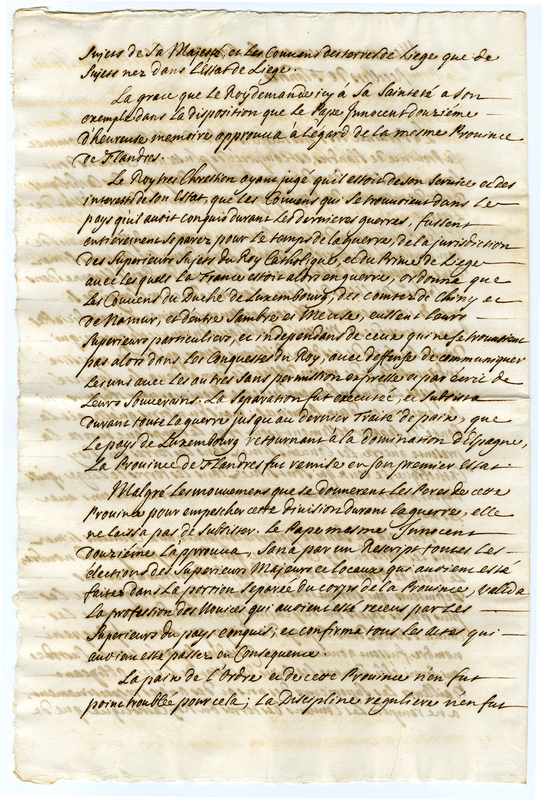 Sujets de Sa Majesté, et les Couvens des terres de Liege que de
Sujets nez dans l'Estat de Liege.
La grace que le Roy demande icy à Sa Sainteté a son
exemple dans la disposition que le Pape Innocent douziéme
d'heureuse memoire approuva à l'égard de la mesme Province
de Flandres.
Le Roy tres Chrestien ayant jugé qu'il estoit de son service et des
interests de son Estat, que les Couvens qui se trouvoient dans le
pays qu'il avoit conquis durant les dernieres guerres, fussent
entiérement separez pour le temps de la guerre, de la jurisdiction
des Superieurs Sujets du Roy Catholique, et du Prince de Liege
avec lesquels la France estoit alors en guerre, ordonna que
les Couvens du Duché de Luxembourg, des comtez de Chiny et
de Namur, et d'entre Sambre et Meuse, eussent leurs
Superieurs particuliers, et independans de ceux qui ne se trouvoient
pas alors dans les Conquestes du Roy, avec deffense de communiquer
les uns avec les autres sans permission expresse et par écrit de
leurs Souverains. La separation fut executée, et subsista
durant toute la guerre jusqu'au dernier Traité de paix, que
le pays de Luxembourg retournant à la domination d'Espagne,
la Province de Flandres fut remise en son premier estat.
Malgré les mouvemens que se donnerent les Peres de cette
Province pour empescher cette division durant la guerre, elle
ne laissa pas de subsister. Le Pape mesme Innocent
douziéme l'approuva, sana par un Rescript toutes les
élections des Superieurs Majeurs et locaux qui avoient esté
faites dans la portion separée du corps de la Province, valida
la profession des Novices qui avoient esté receus par les
Superieurs du pays conquis, et confirma tous les actes qui
avoient esté passez en Consequence.
La paix de l'Ordre et de cette Province n'en fut
point troublée pour cela; la Discipline reguliere n'en fut